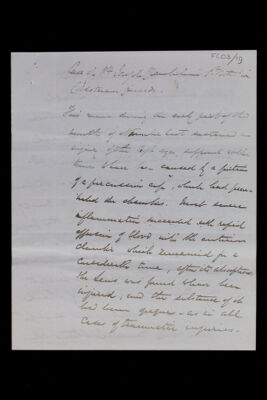 FC03/19
Case of Pte Joseph 1st Batt.
Coldstream Guards.
This man during the early part of the
month of November last sustained an
injury of the left eye, supposed at the
time to have been caused by a portion
of a percussion cap, which had pene-
trated the chamber. Most severe
inflammation succeeded with rapid
effusion of blood into the anterior
chamber which remained for a
considerable time, after its absorption
the Lens was found to have been
injured, and the substance of it
had been opaque - as in all
cases of traumatic injuries.